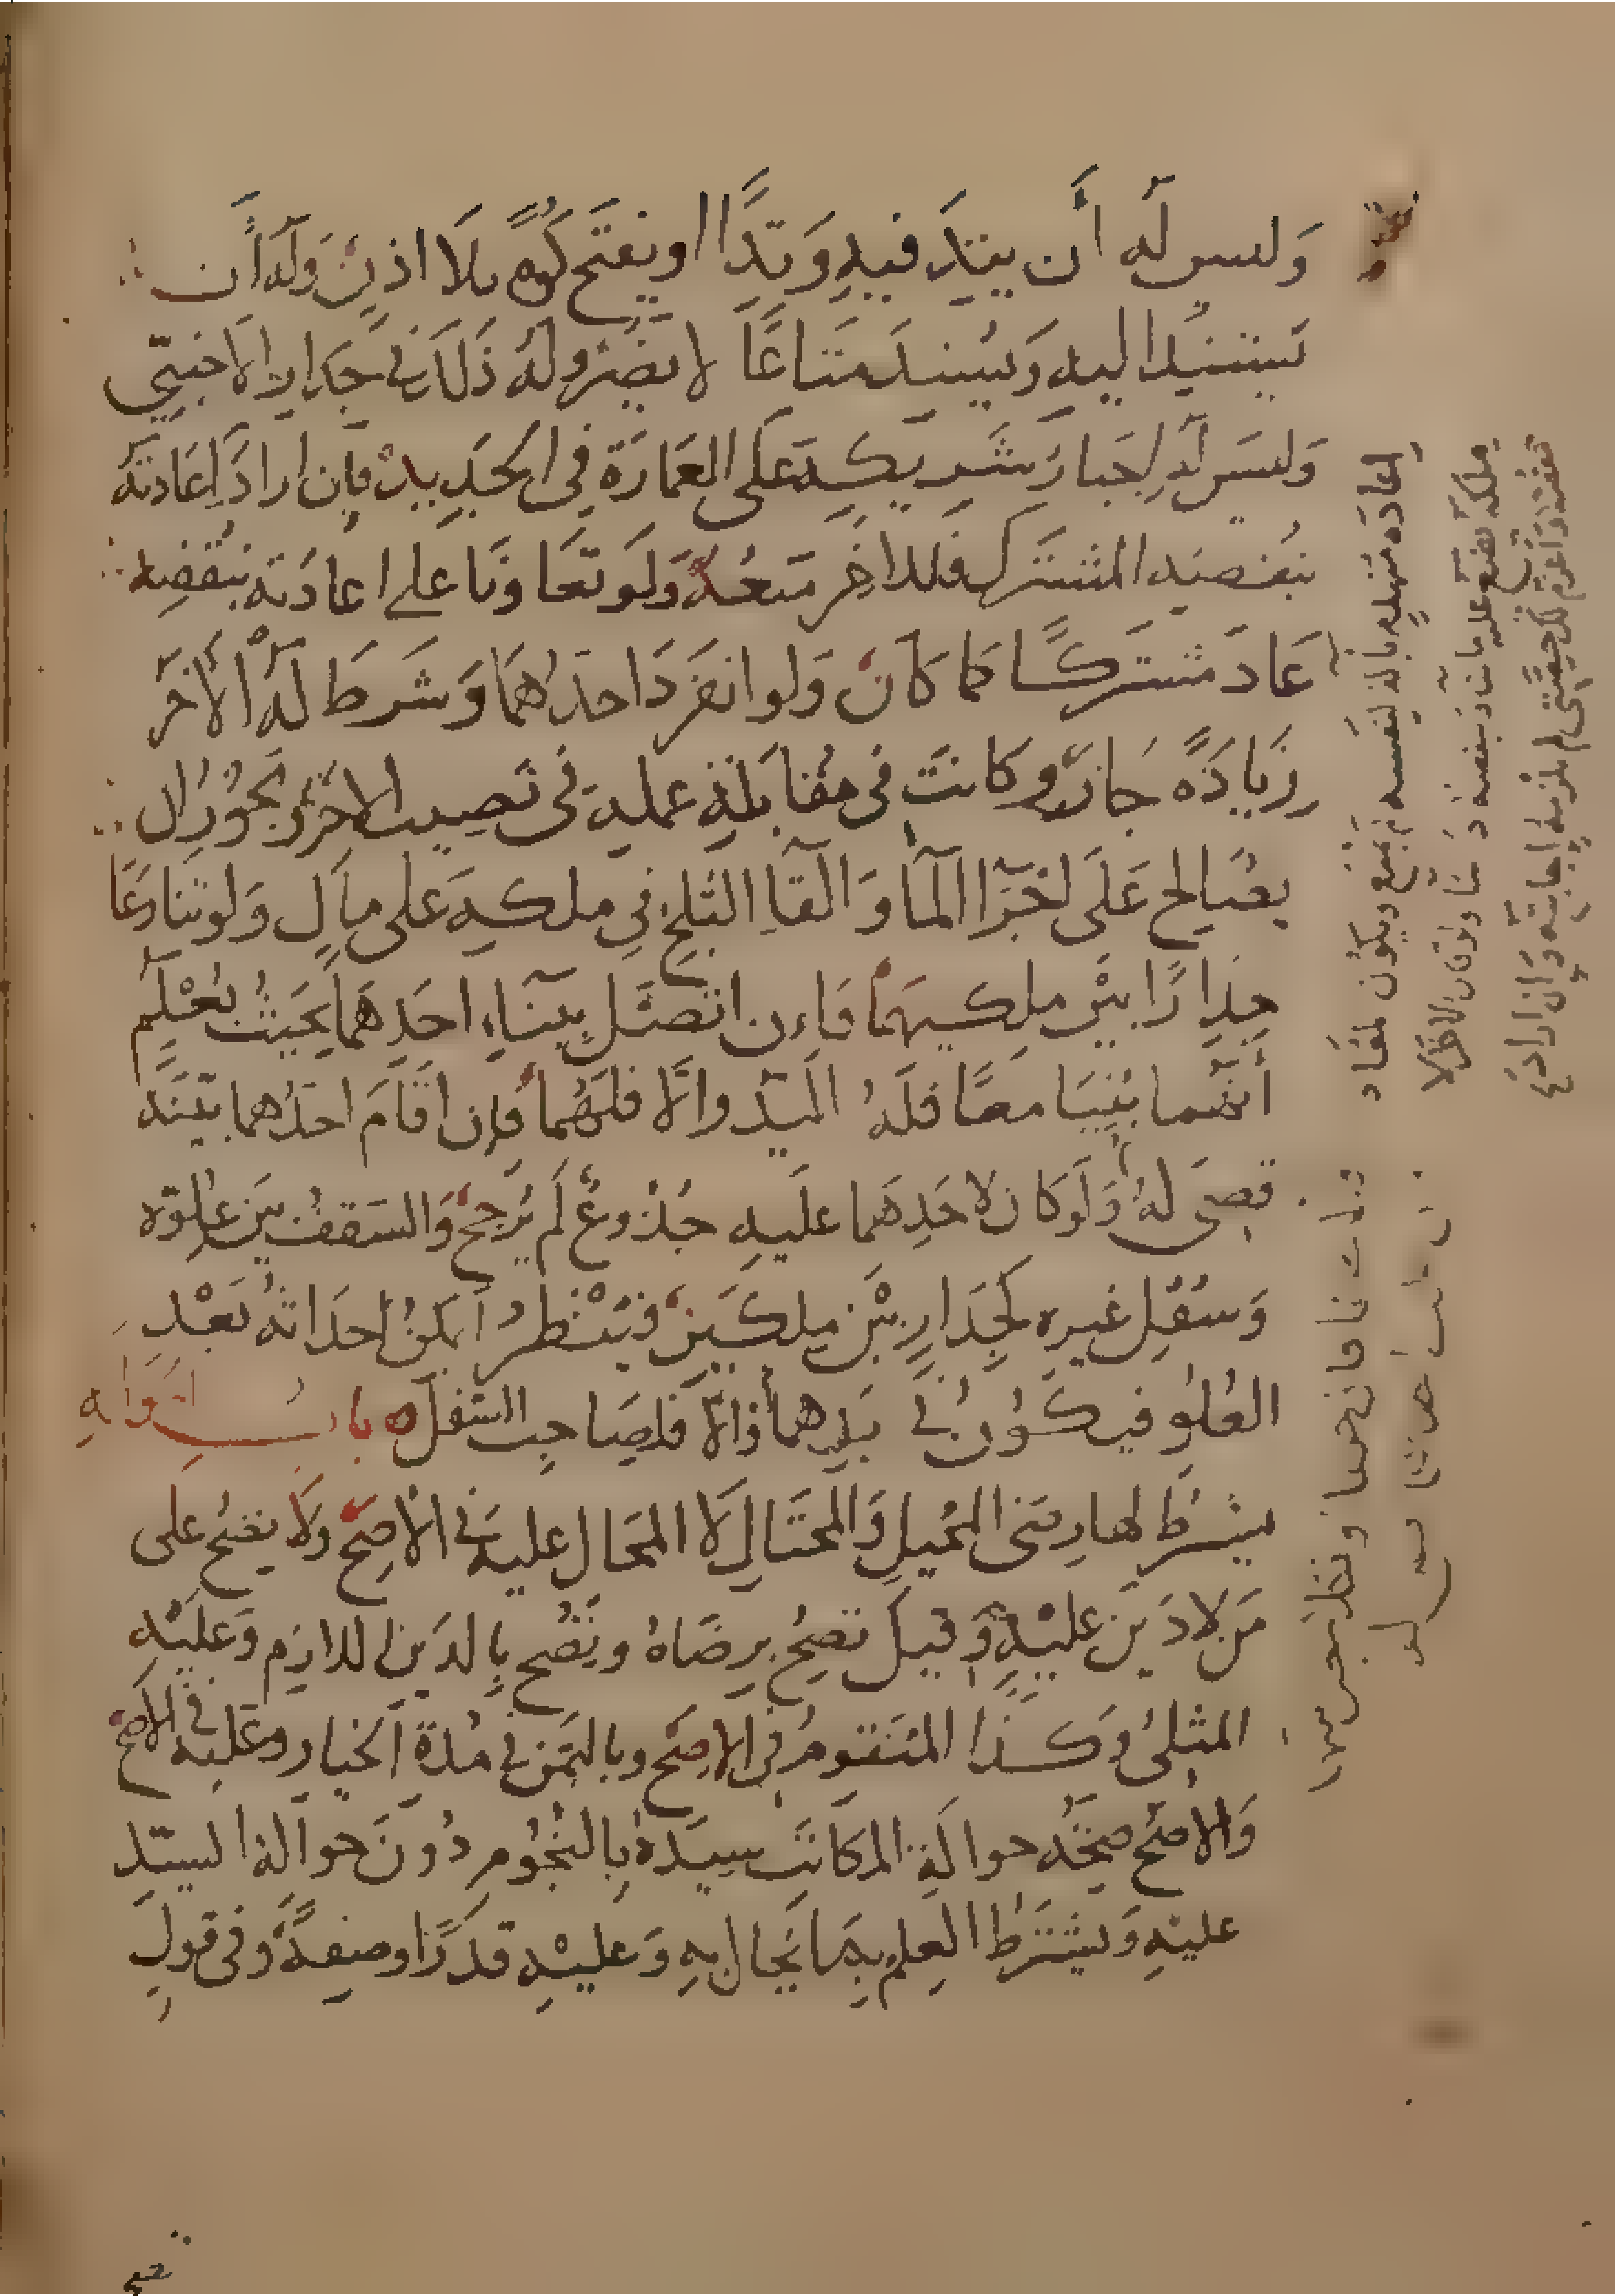 وليس له أن يتد فيه وتدًا او يفتح كوة بلا اذن وله أن
يستند اليه ويسند متاعًا لا يضر وله ذلك في جدار الاجنبي
وليس له اجبار شريكه على العمارة في الجديد فإن اراد اعادته
بنقضه المشترك فللاخر منعه ولو تعاونا على اعادته بنقضه
عاد مشتركًا كما كان ولو انفرد احدهما وشرط له الآخر
زيادةً جاز وكانت في مقابلة عمله في نصيب الاخر ويجوز ان
يصالح على اجراء الماء والقاء الثلج في ملكه على مال ولو تنازعا
جدارًا بين ملكيهما فإن اتصل ببناء احدهما بحيث يعلم
أنهما بنيا معًا فله اليد والا فلهما فإن اقام احدهما بينة
قضي له ولو كان لاحدهما عليه جذوع لم يرجح والسقف بين علوه
وسفل غيره كجدار بين ملكين فينظر أيمكن احداثه بعد
العلو فيكون في يدهما أو لا فلصاحب السفل باب الحوالة
يشترط لها رضى المحيل والمحتال لا المحال عليه في الأصح ولا يصح على
من لا دين عليه وقيل تصح برضاه وتصح بالدين اللازم وعليه
المثلي وكذا المتقوم في الاصح وبالثمن في مدة الخيار وعليه في الاصح
والاصح صحة حوالة المكاتب سيده بالنجوم دون حوالة السيد
عليه ويشترط العلم بما يحال به وعليه قدرًا وصفةً وفي قول
اعاده منهدم بالة لنفسه لم يمنع ويكون المعاد
ملكه يضع عليه ما شاء وينقضه اذا شاء ولو قال الاخر لا
تنقضه واغرم لك حصتي لم يلزمه اجابته وان اراد